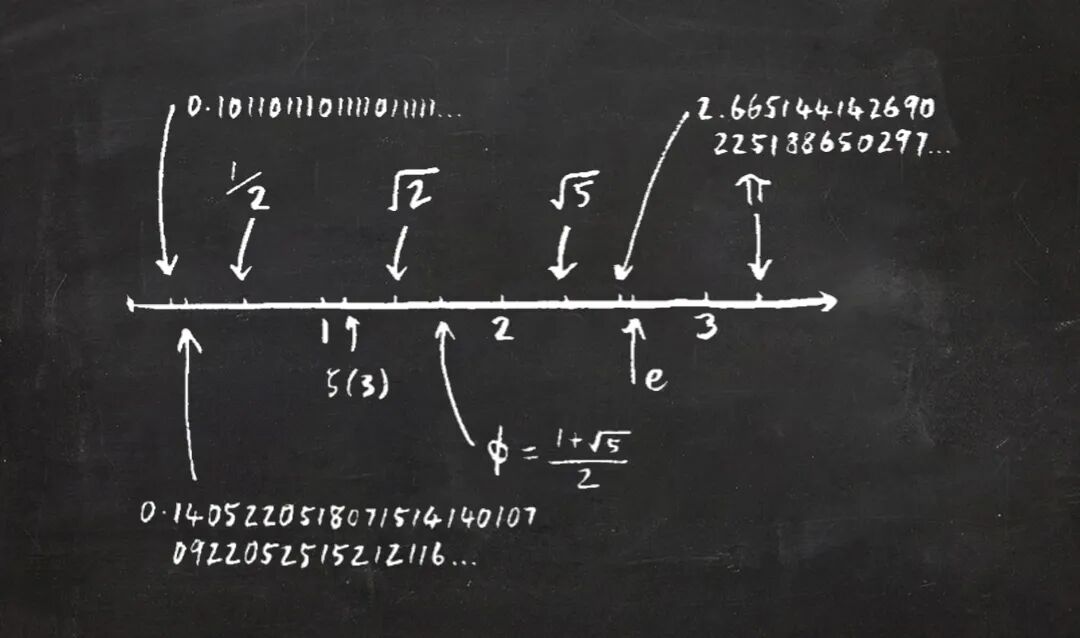 0.1011011101111011111...
2.665144142690
225188650297...
1/2
√2
√5
π
1
2
3
ζ(3)
e
ϕ = (1+√5)/2
0.1405220518071514140107
0922052515212116...